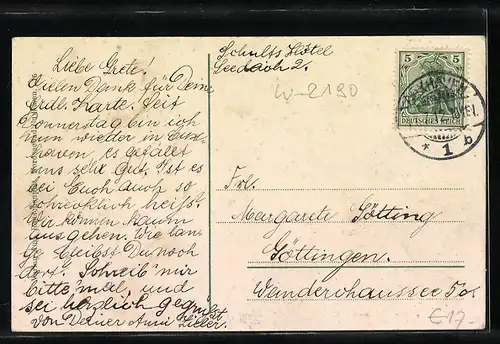 Schults Hotel
Seedeich 2.
Liebe Grete!
Vielen Dank für Deine
frdl. Karte. Seit
Donnerstag bin ich
nun wieder in Cux-
haven. es gefällt
uns sehr gut. Ist es
bei Euch auch so
schrecklich heiß?
Wir können kaum
ausgehen. Wie lan-
ge bleibst Du noch
dort. Schreib mir
bitte mal, und
sei herzlich gegrüßt
von Deiner Anni
W-2190
5 5
DEUTSCHES REICH
* 1 b
Frl.
Margarete Götting
Göttingen.
€ 17.-